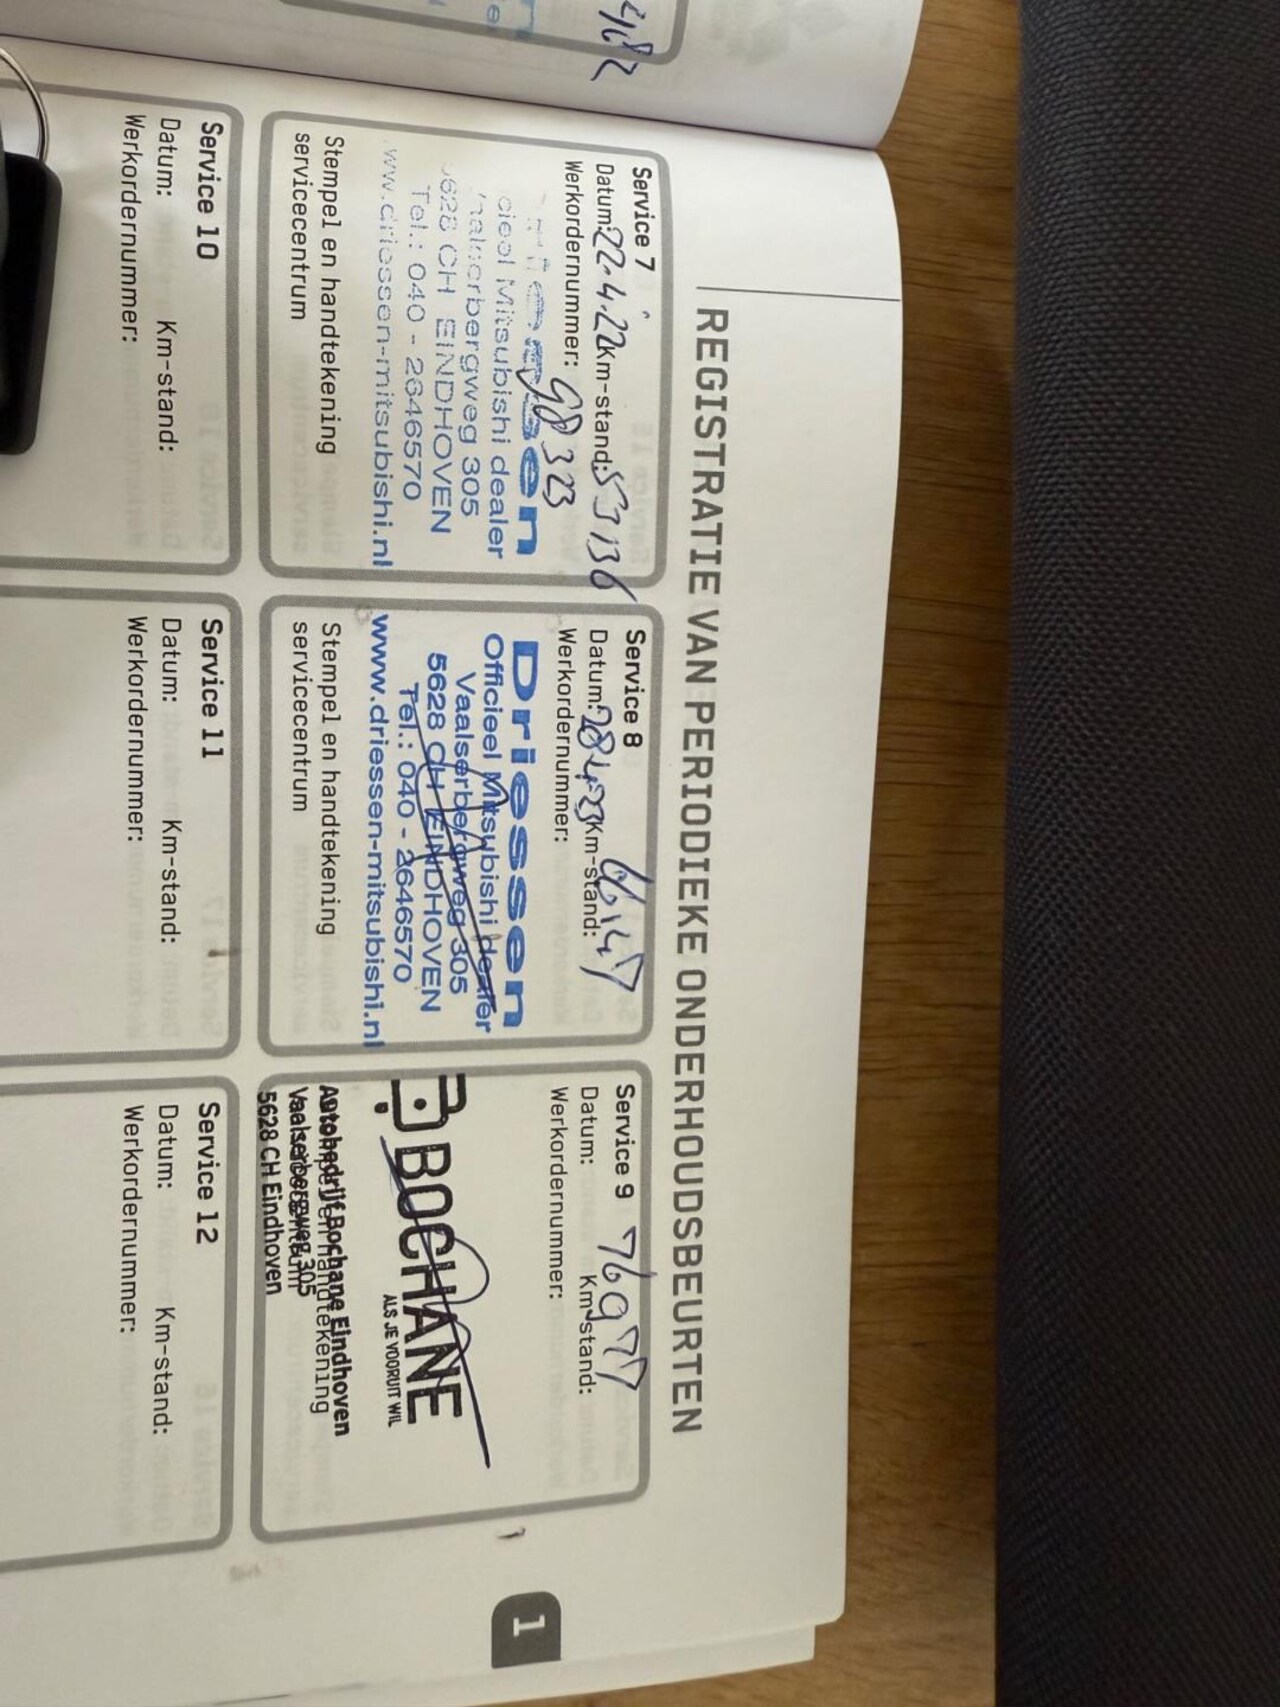 REGISTRATIE VAN PERIODIEKE ONDERHOUDSBEURTEN
Service 7
Datum: 22.4.22 Km-stand: 53136
Werkordernummer: 98323
Driessen
cieel Mitsubishi dealer
Vaalserbergweg 305
5628 CH EINDHOVEN
Tel.: 040 - 2646570
www.driessen-mitsubishi.nl
Stempel en handtekening
servicecentrum
Service 8
Datum: 28-4-23 Km-stand:
Werkordernummer:
Driessen
Officieel Mitsubishi dealer
Vaalserbergweg 305
5628 CH EINDHOVEN
Tel.: 040 - 2646570
www.driessen-mitsubishi.nl
Stempel en handtekening
servicecentrum
Service 9 76977
Datum: Km-stand:
Werkordernummer:
BOCHANE
ALS JE VOORUIT WIL
Autobedrijf Bochane Eindhoven
Stempel en handtekening
Vaalserbergweg 305
servicecentrum
5628 CH Eindhoven
Service 10
Datum: Km-stand:
Werkordernummer:
Service 11
Datum: Km-stand:
Werkordernummer:
Service 12
Datum: Km-stand:
Werkordernummer:
1